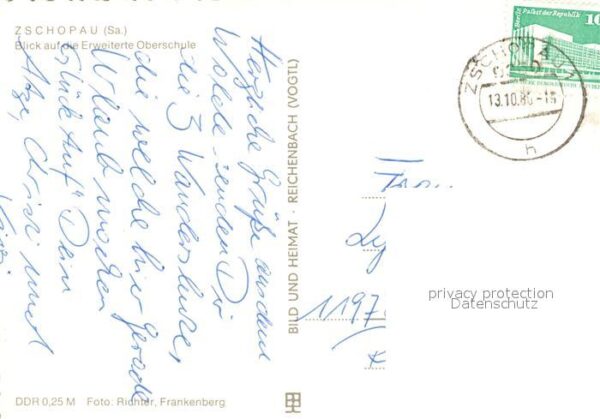 ZSCHOPAU (Sa.)
Blick auf die Erweiterte Oberschule
Herzliche Grüße aus dem
Walde senden Dir
die 3 Wandersleute,
die welche hier gerade
Urlaub machen
"Glück Auf" Dein
Christ und
BILD UND HEIMAT · REICHENBACH (VOGTL)
Berlin Palast der Republik
10
ZSCHOPAU 1
13.10.86-15
h
1197
privacy protection
Datenschutz
DDR 0,25 M Foto: Richter, Frankenberg